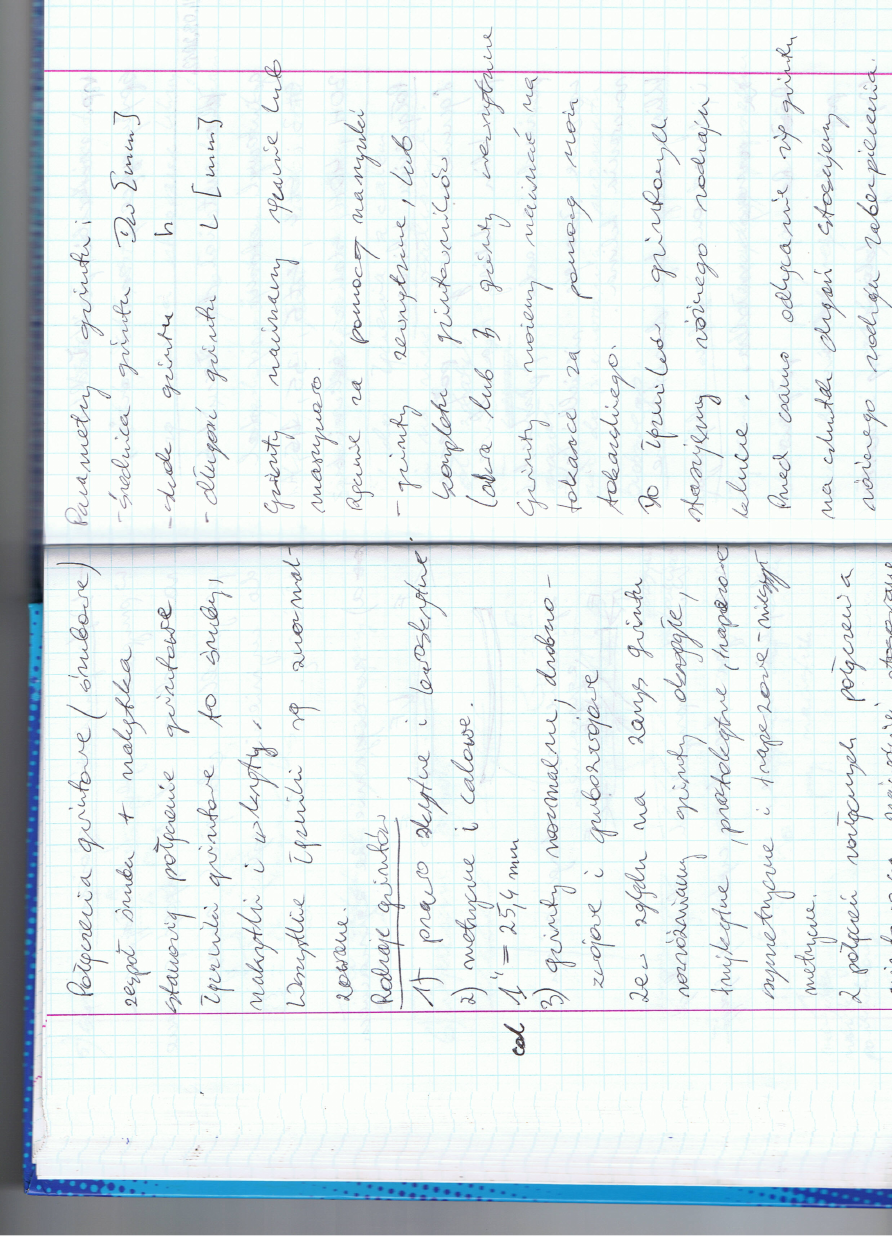 Połączenia gwintowe (śrubowe)
zespół śruba + nakrętka
stanowią połączenie gwintowe
Łączniki gwintowe to śruby,
nakrętki i wkręty.
Wszystkie łączniki są znormal-
izowane.
Rodzaje gwintów
1) prawo skrętne i lewoskrętne.
2) metryczne i calowe.
cal 1" = 25,4 mm
3) gwinty normalne, drobno-
zwojowe i grubozwojowe
Ze względu na zarys gwintu
rozróżniamy gwinty okrągłe,
trójkątne, prostokątne, trapezowe
symetryczne i trapezowe-niesy
metryczne.
Z połączeń rozłącznych połączenia
Parametry gwintu:
- średnica gwintu Dw [mm]
- skok gwintu h
- długość gwintu L [mm]
Gwinty nacinamy ręcznie lub
maszynowo
Ręcznie za pomocą narzynki
- gwinty zewnętrzne, lub
komplety gwintowników
(dwa lub 3 gwinty wewnętrzne
Gwinty możemy nacinać na
tokarce za pomocą noża
tokarskiego.
Do łączników gwintowych
stosujemy różnego rodzaju
klucze.
Przed samo odkręcanie się gwintu
na skutek drgań stosujemy
różnego rodzaju zabezpieczenia.